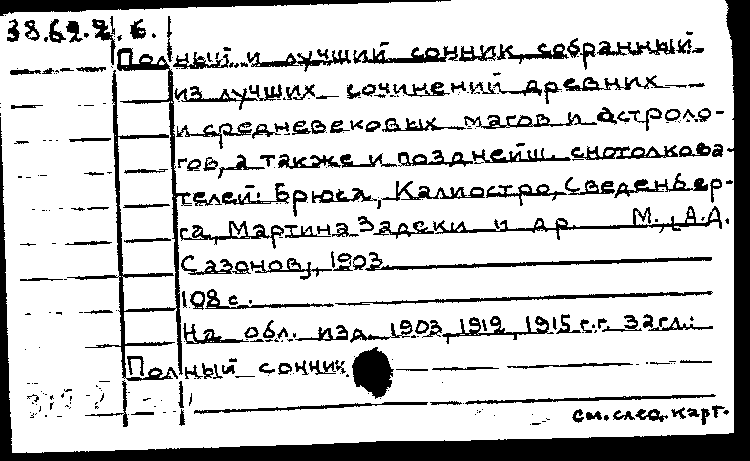 38.62.2.6.
Полный и лучший сонник, собранный
из лучших сочинений древних
и средневековых магов и астроло-
гов, а также и позднейш. снотолкова-
телей: Брюса, Калиостро, Сведенбер-
га, Мартина Задеки и др. М., [А.Д.
Сазонов], 1903
108 с.
На обл. изд. 1903, 1912, 1915 г.г. загл.:
Полный сонник
см. след. карт.